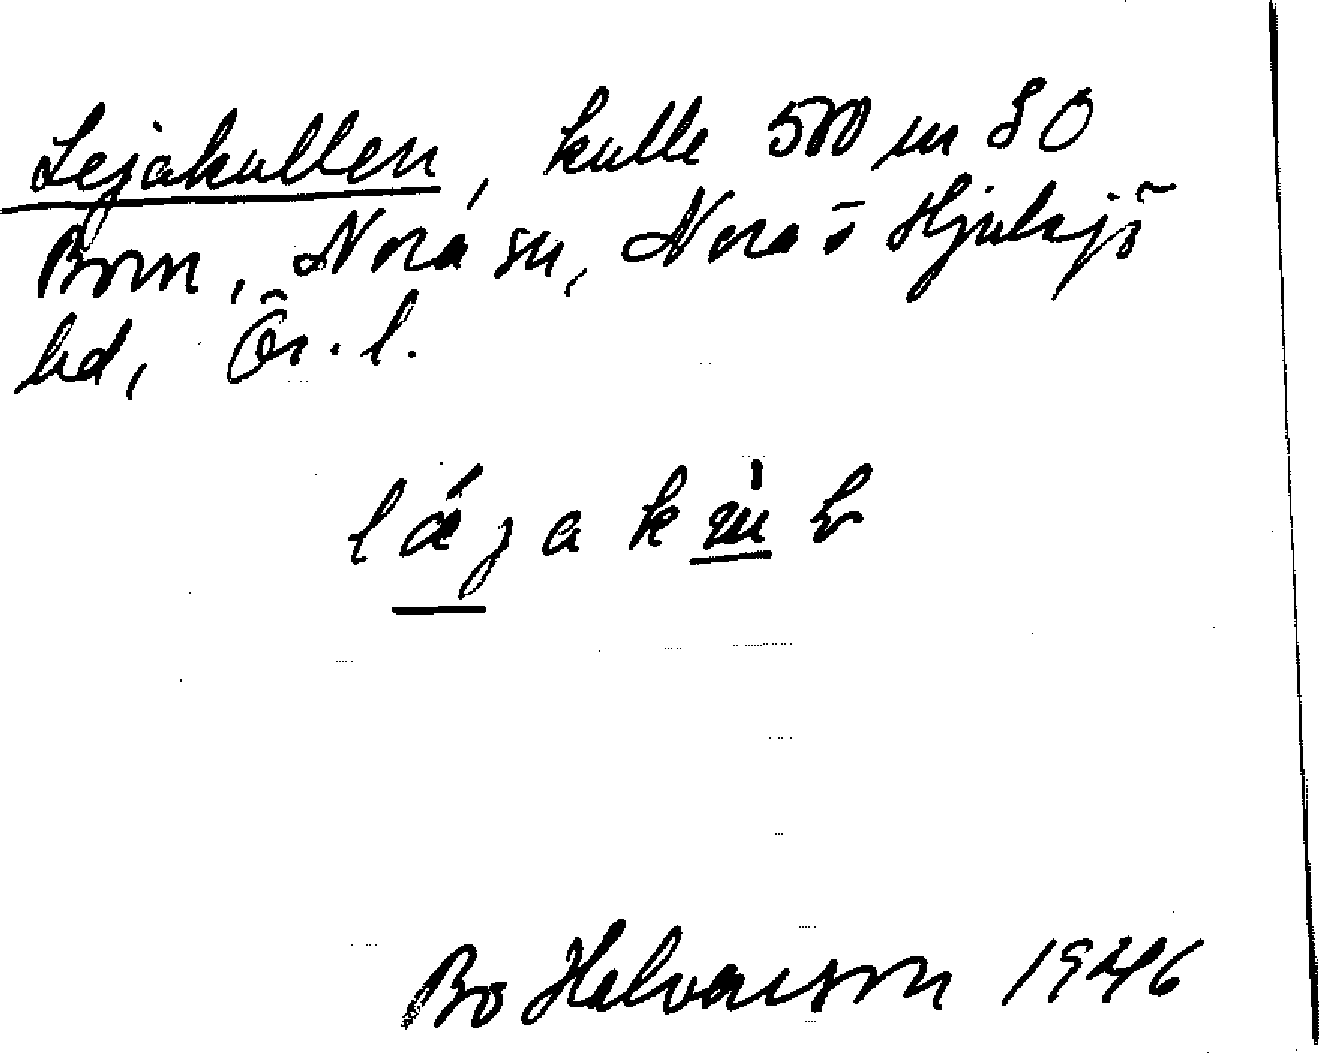 Lejakullen, kulle 500 m SO
Born, Nora sn, Nora o Hjulsjö
hd, Ör. l.
Bo Halvarson 1946